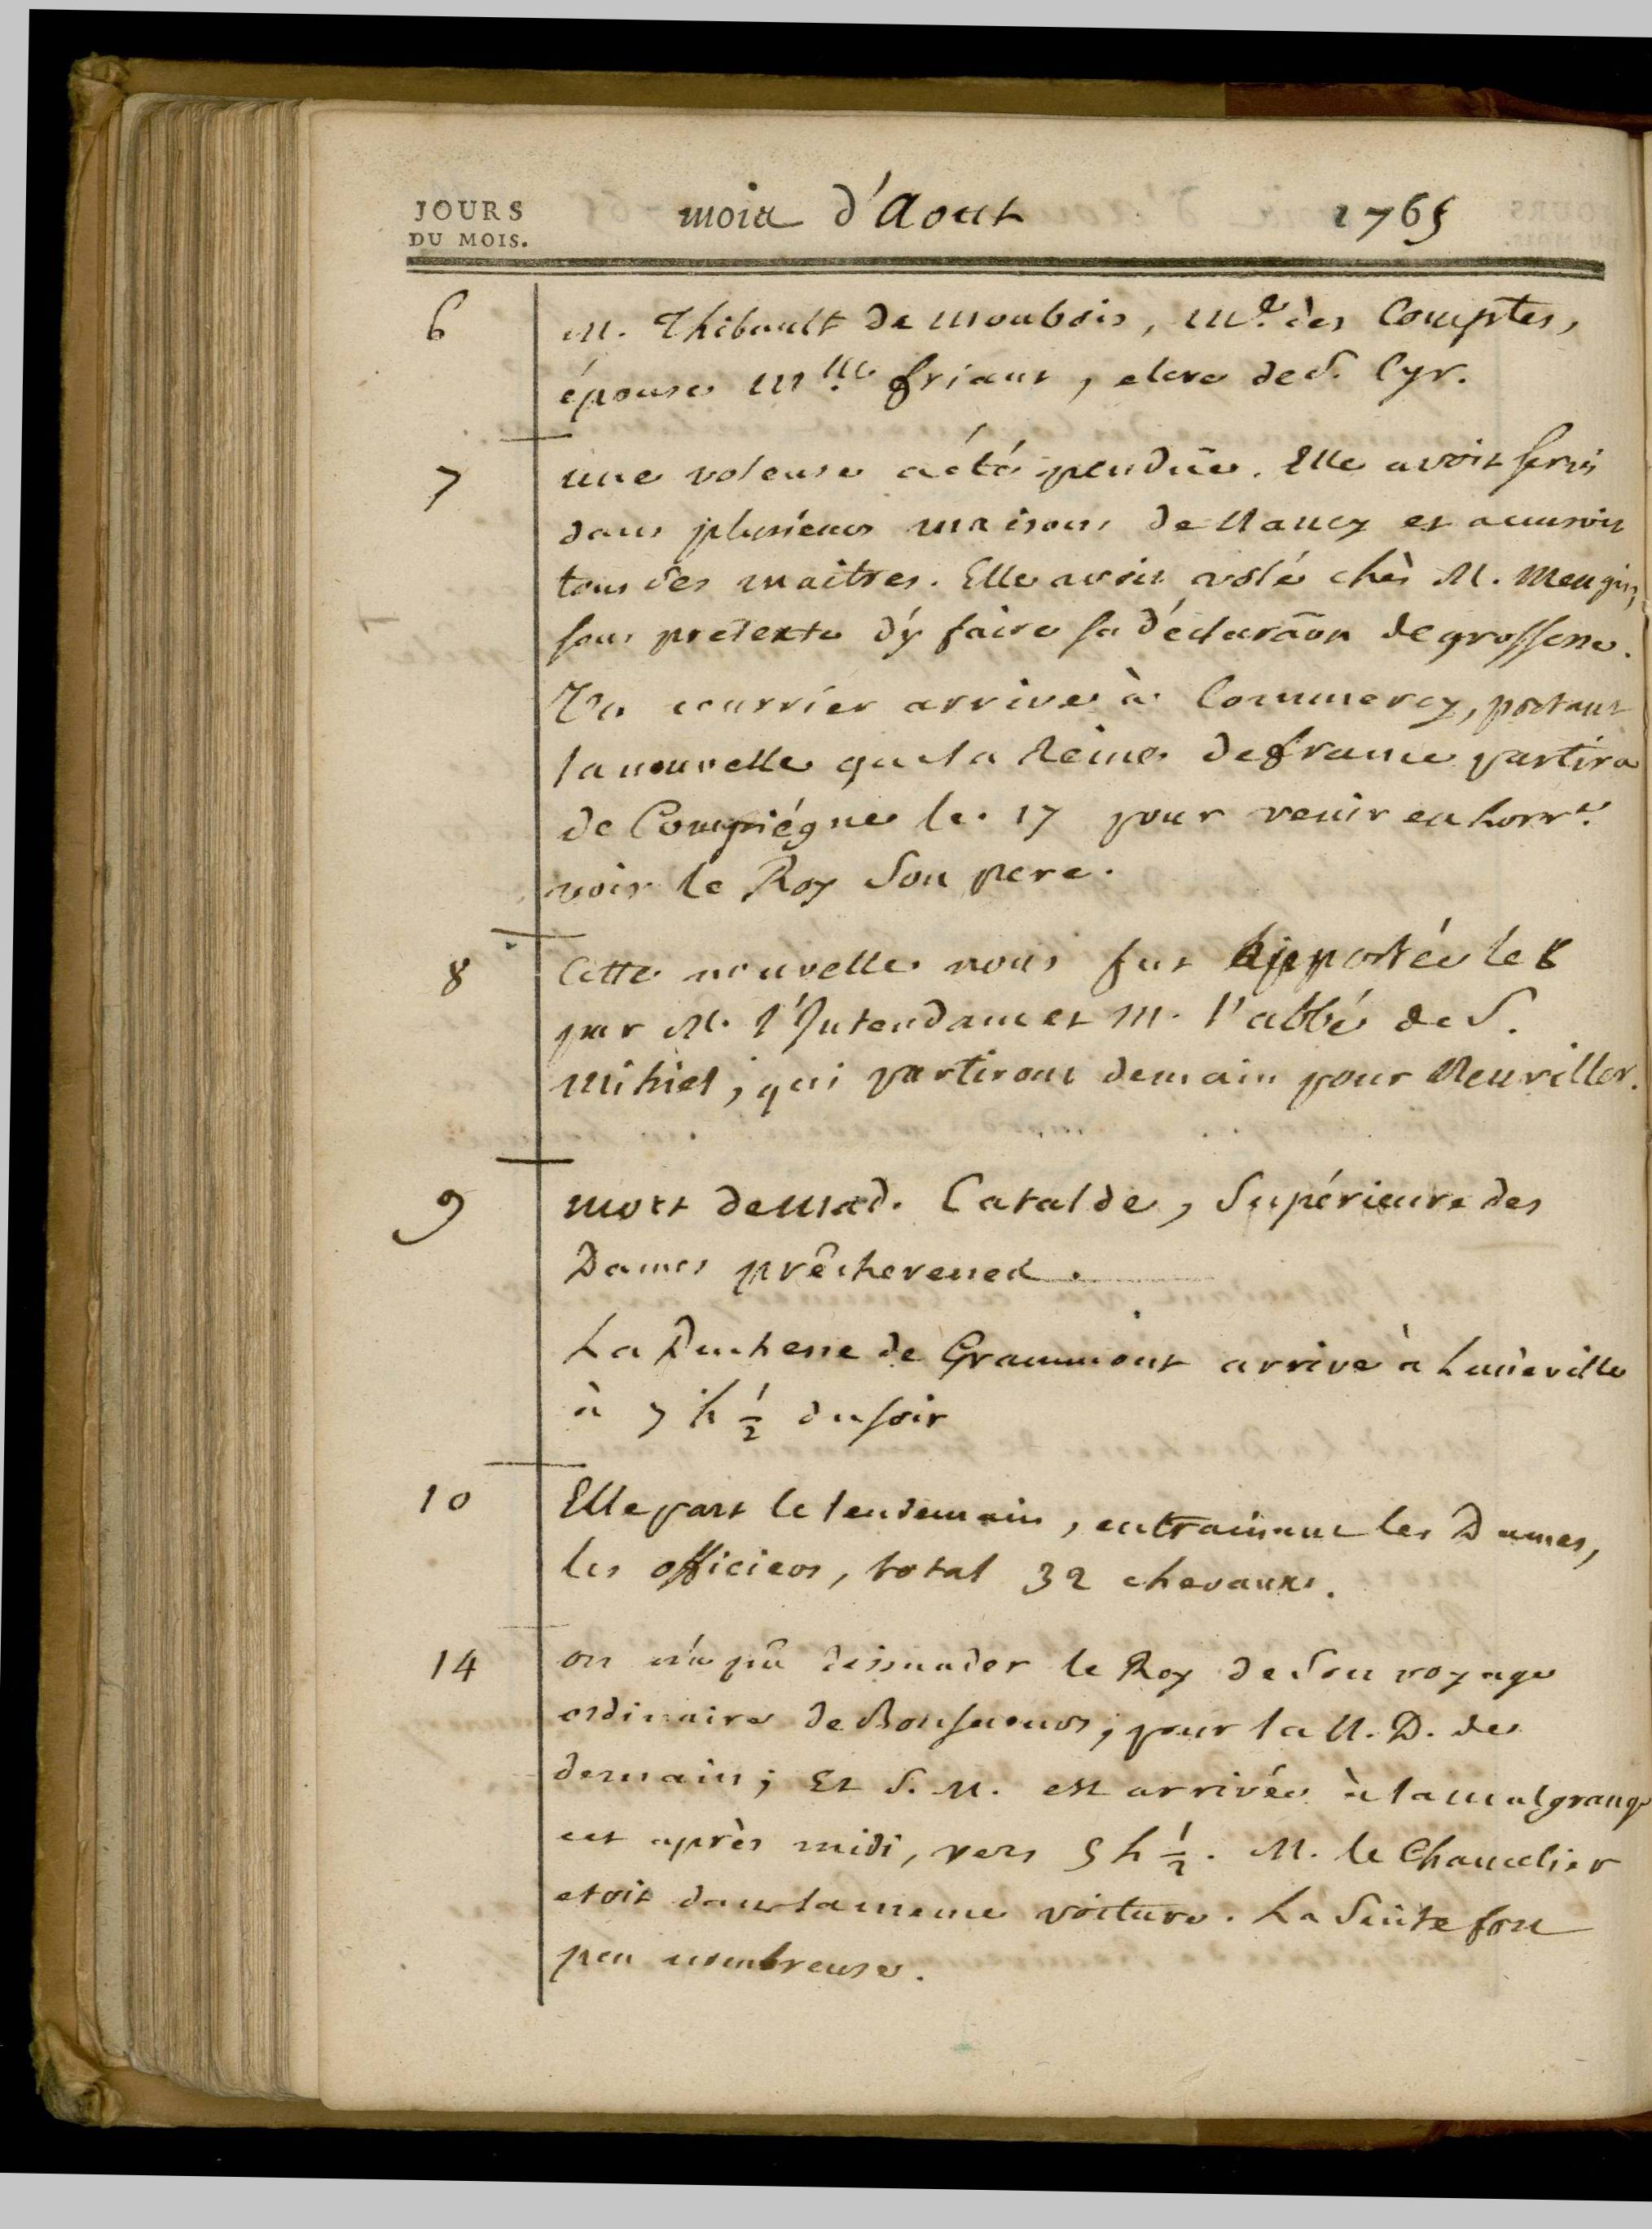 JOURS
DU MOIS.
mois d'Aout 1765
6 M. Thibault de Monbois, Me. des Comptes,
épouse Mlle. friant, eleve de S. Cyr.
7 une voleuse a été pendüe. Elle avoit servi
dans plusieurs maisons de Nancy et accusoit
tous ses maitres. Elle avoit volé chès M. Mengin,
sous pretexte d'y faire sa déclarãon de grossesse.
Un courrier arrive à Commercy, portant
la nouvelle que la Reine de france partira
de Compiégne le 17 pour venir en Lorre.
voir le Roy Son pere.
8 Cette nouvelle nous fut apportée le 8
par M. l'Intendant et M. l'abbé de S.
Mihiel, qui partiront demain pour Neuviller.
9 mort de Mad. Catalde, Supérieure des
Dames prêcheresses.
La Duchesse de Grammont arrive à Lunéville
à 7 h 1/2 du soir
10 Elle part le lendemain, entrainant les Dames,
les officiers, total 32 chevaux.
14 on n'a pû dissuader le Roy de Son voyage
ordinaire de Bonsecours, pour la N. D. de
demain; Et S. M. est arrivée à la malgrange
cet après midi, vers 5 h 1/2. M. le Chancelier
etoit dans la meme voiture. La Suite fort
peu nombreuse.